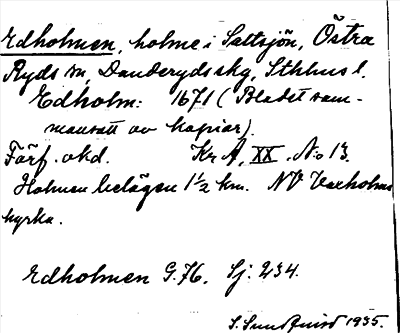 Edholmen, holme i Saltsjön, Östra
Ryds sn, Danderyds skg, Sthlms l.
Edholm: 1671 (Bladet sam-
mansatt av kopior).
Förf. okd. Kr A, XX. No 13.
Holmen belägen 1½ km. NV Vaxholms
kyrka.
Edholmen G.76. Sj. 234.
S. Sundquist 1935.